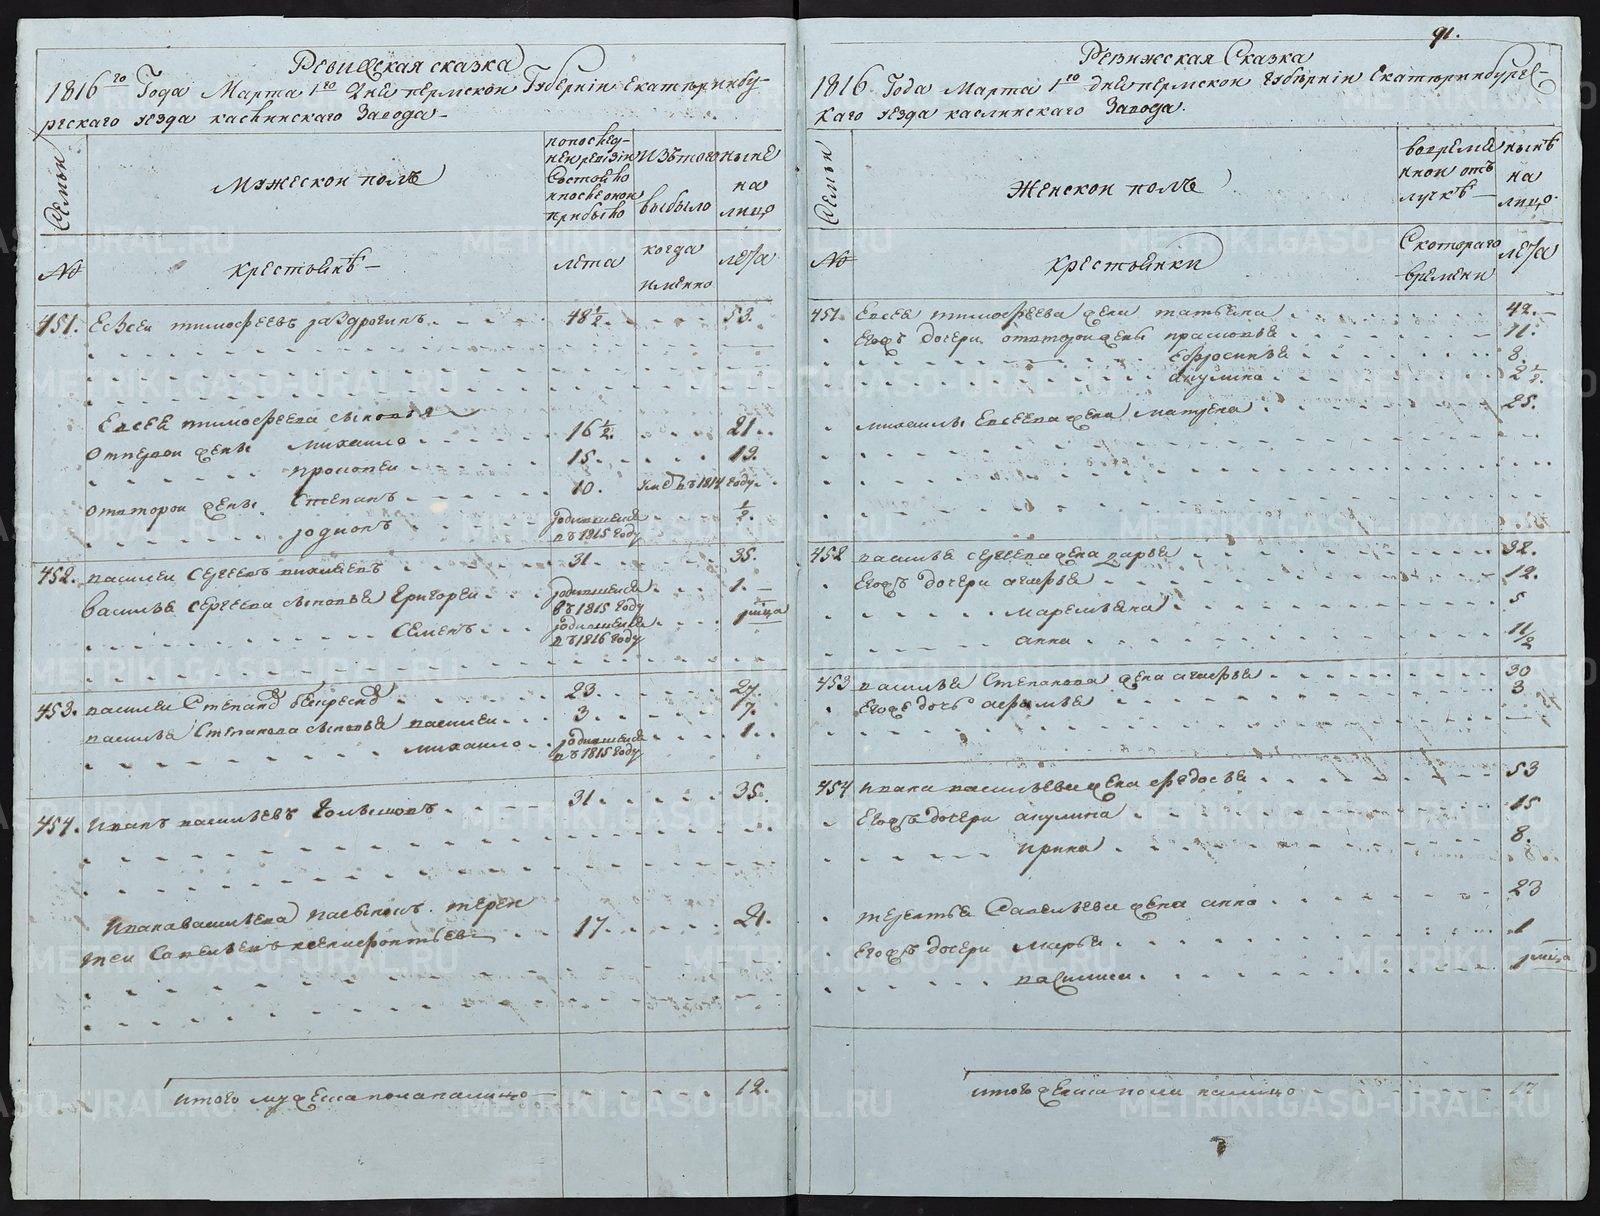 91.
Ревижская сказка
1816го Года Марта 1го дня пермской Губернїи Екатеринбу-
ргскаго уезда каслинскаго Завода
Семьи
Мужескои полъ
по последней ревизїи состояло и после оной прибыло
Изъ того выбыло
ныне на лицо
№
крестьянѣ
лета
когда именно
лета
451. Евсеи тимофеевъ 48½ 53.
Евсея тимофеева сыновья
отпервои жены михаило 16½ 21
прокопеи 15 19.
отвторои жены Степанъ 10. умеръ въ 1814 году
родионъ родившейся въ 1815 году ½.
452. василеи Сергеевъ 31 35.
василья Сергеева сыновья Григореи родившейся въ 1815 году 1.
Семенъ родившейся въ 1816 году
453. василеи 23. 27.
василья Степанова сыновья василеи 3. 7.
михаило родившейся въ 1815 году 1.
454. иванъ васильевъ 31. 35.
ивана васильева пасынокъ терен
теи Савельевъ 17. 21.
итого мужеска пола налицо 12.
Ревижская Сказка
1816 Года Марта 1го дня пермской губернїи Екатеринбургс-
каго уезда каслинскаго Завода
Семьи
Женскои полъ
во временной отлучкѣ
нынѣ на лицо
№
крестьянки
С котораго времени
лета
451 Евсея тимофеева жена татьяна 42.
Егожъ дочери отвторои жены прасковья 11.
Ефросинья 8.
акулина 2½.
михаилы Евсеева жена матрена 25.
452 василья Сергеева жена дарья 32.
Егожъ дочери агафья 12.
маремьяна 5
анна 1½
453 василья Степанова жена агафья 30
Егожъ дочь 3
454 ивана васильева жена федосья 53
Егожъ дочери акулина 15
ирина 8.
терентья Савельева жена анна 23
Егожъ дочери Марья 1
василиса
итого женска пола налицо 17